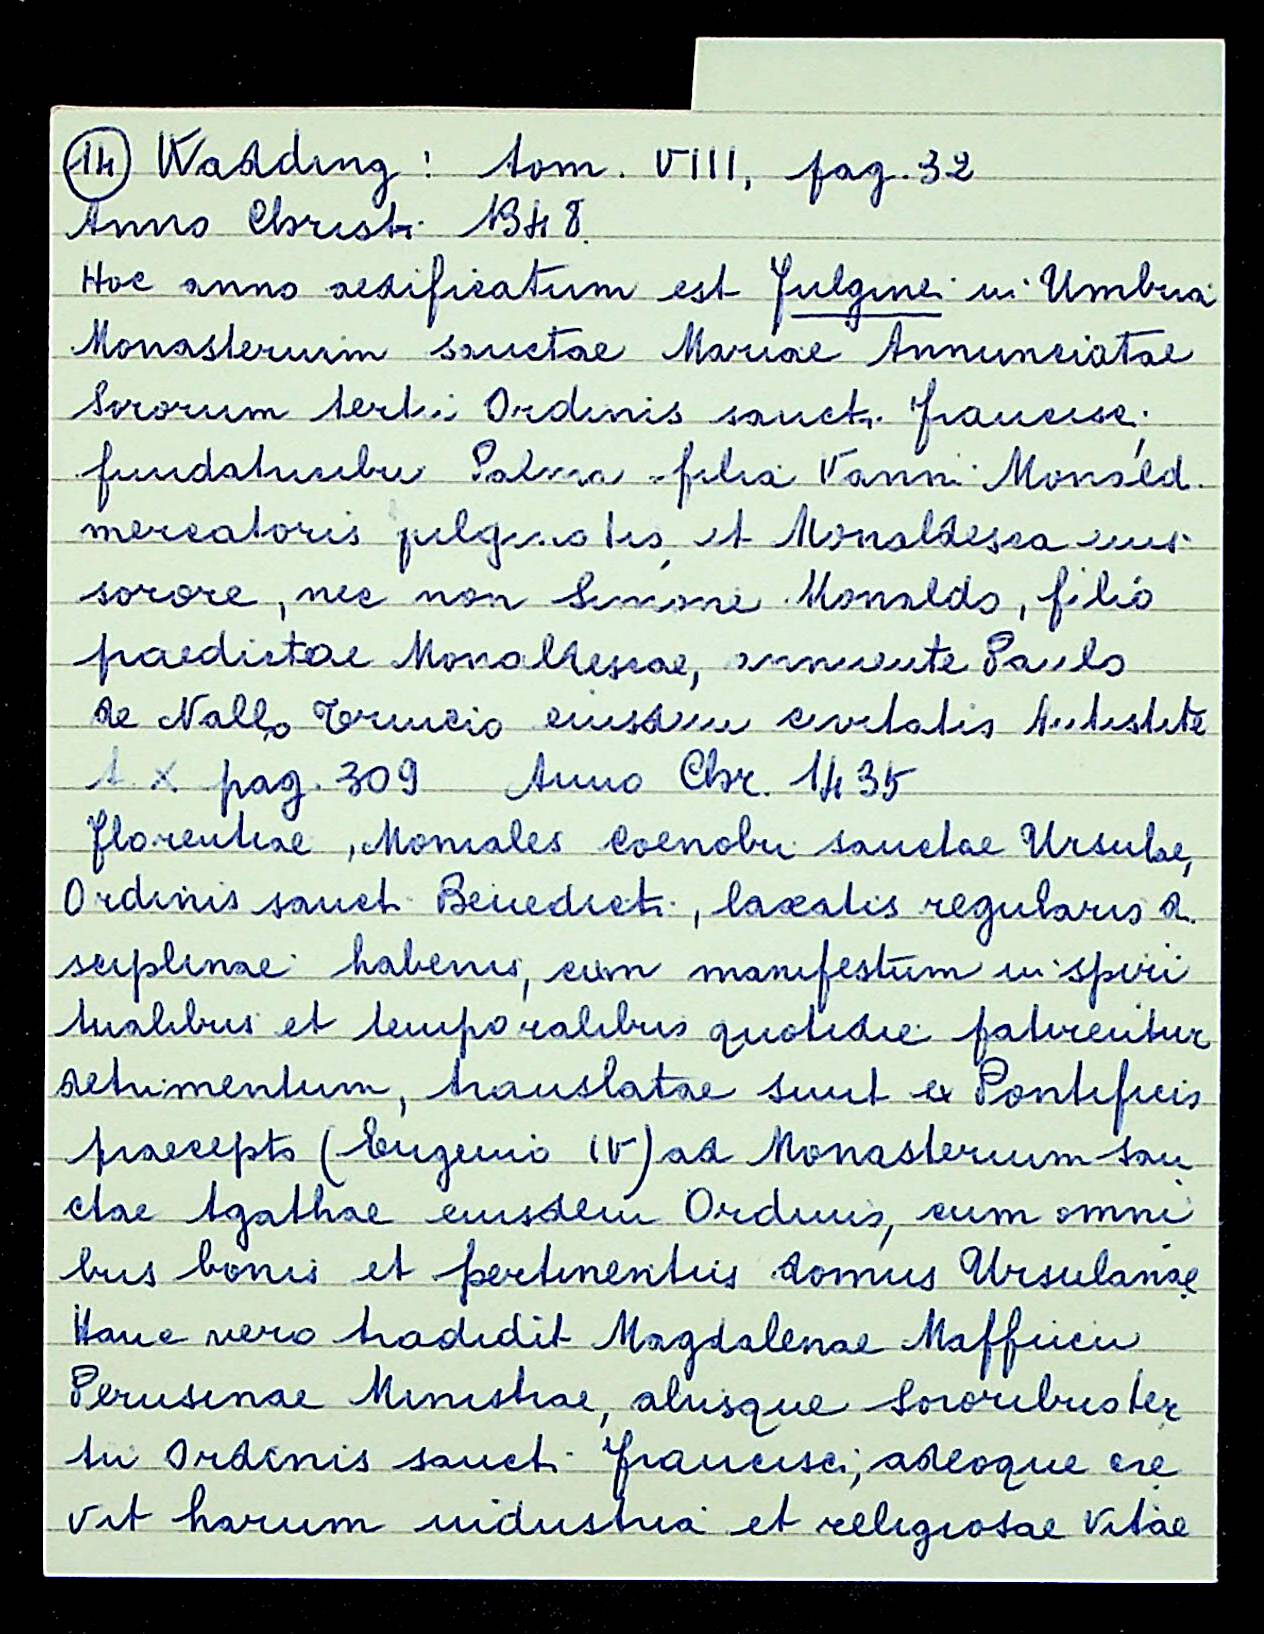 (14) Wadding: tom. VIII, pag. 32
Anno Christi 1348.
Hoc anno aedificatum est Fulginei in Umbria
Monasterium sanctae Mariae Annunciatae
Sororum tertii Ordinis sancti Francisci,
fundatricibus Palma filia Vanni Monald.
mercatoris fulginatis, et Monaldesca eius
sorore, nec non Simone Monaldo, filio
praedictae Monaldescae, annuente Paulo
de Nallo Trincio eiusdem civitatis Antistite
t. X pag. 309 Anno Chr. 1435
Florentiae, Moniales coenobii sanctae Ursulae,
Ordinis sancti Benedicti, laxatis regularis di
sciplinae habenis, cum manifestum in spiri
tualibus et temporalibus quotidie paterentur
detrimentum, translatae sunt ex Pontificis
praecepto (Eugenio IV) ad Monasterium san
ctae Agathae eiusdem Ordinis, cum omni
bus bonis et pertinentiis domus Ursulanae
Hanc vero tradidit Magdalenae Maffucii
Perusinae Ministrae, aliisque Sororibus ter
tii Ordinis sancti Francisci; adeoque cre
vit harum industria et religiosae vitae